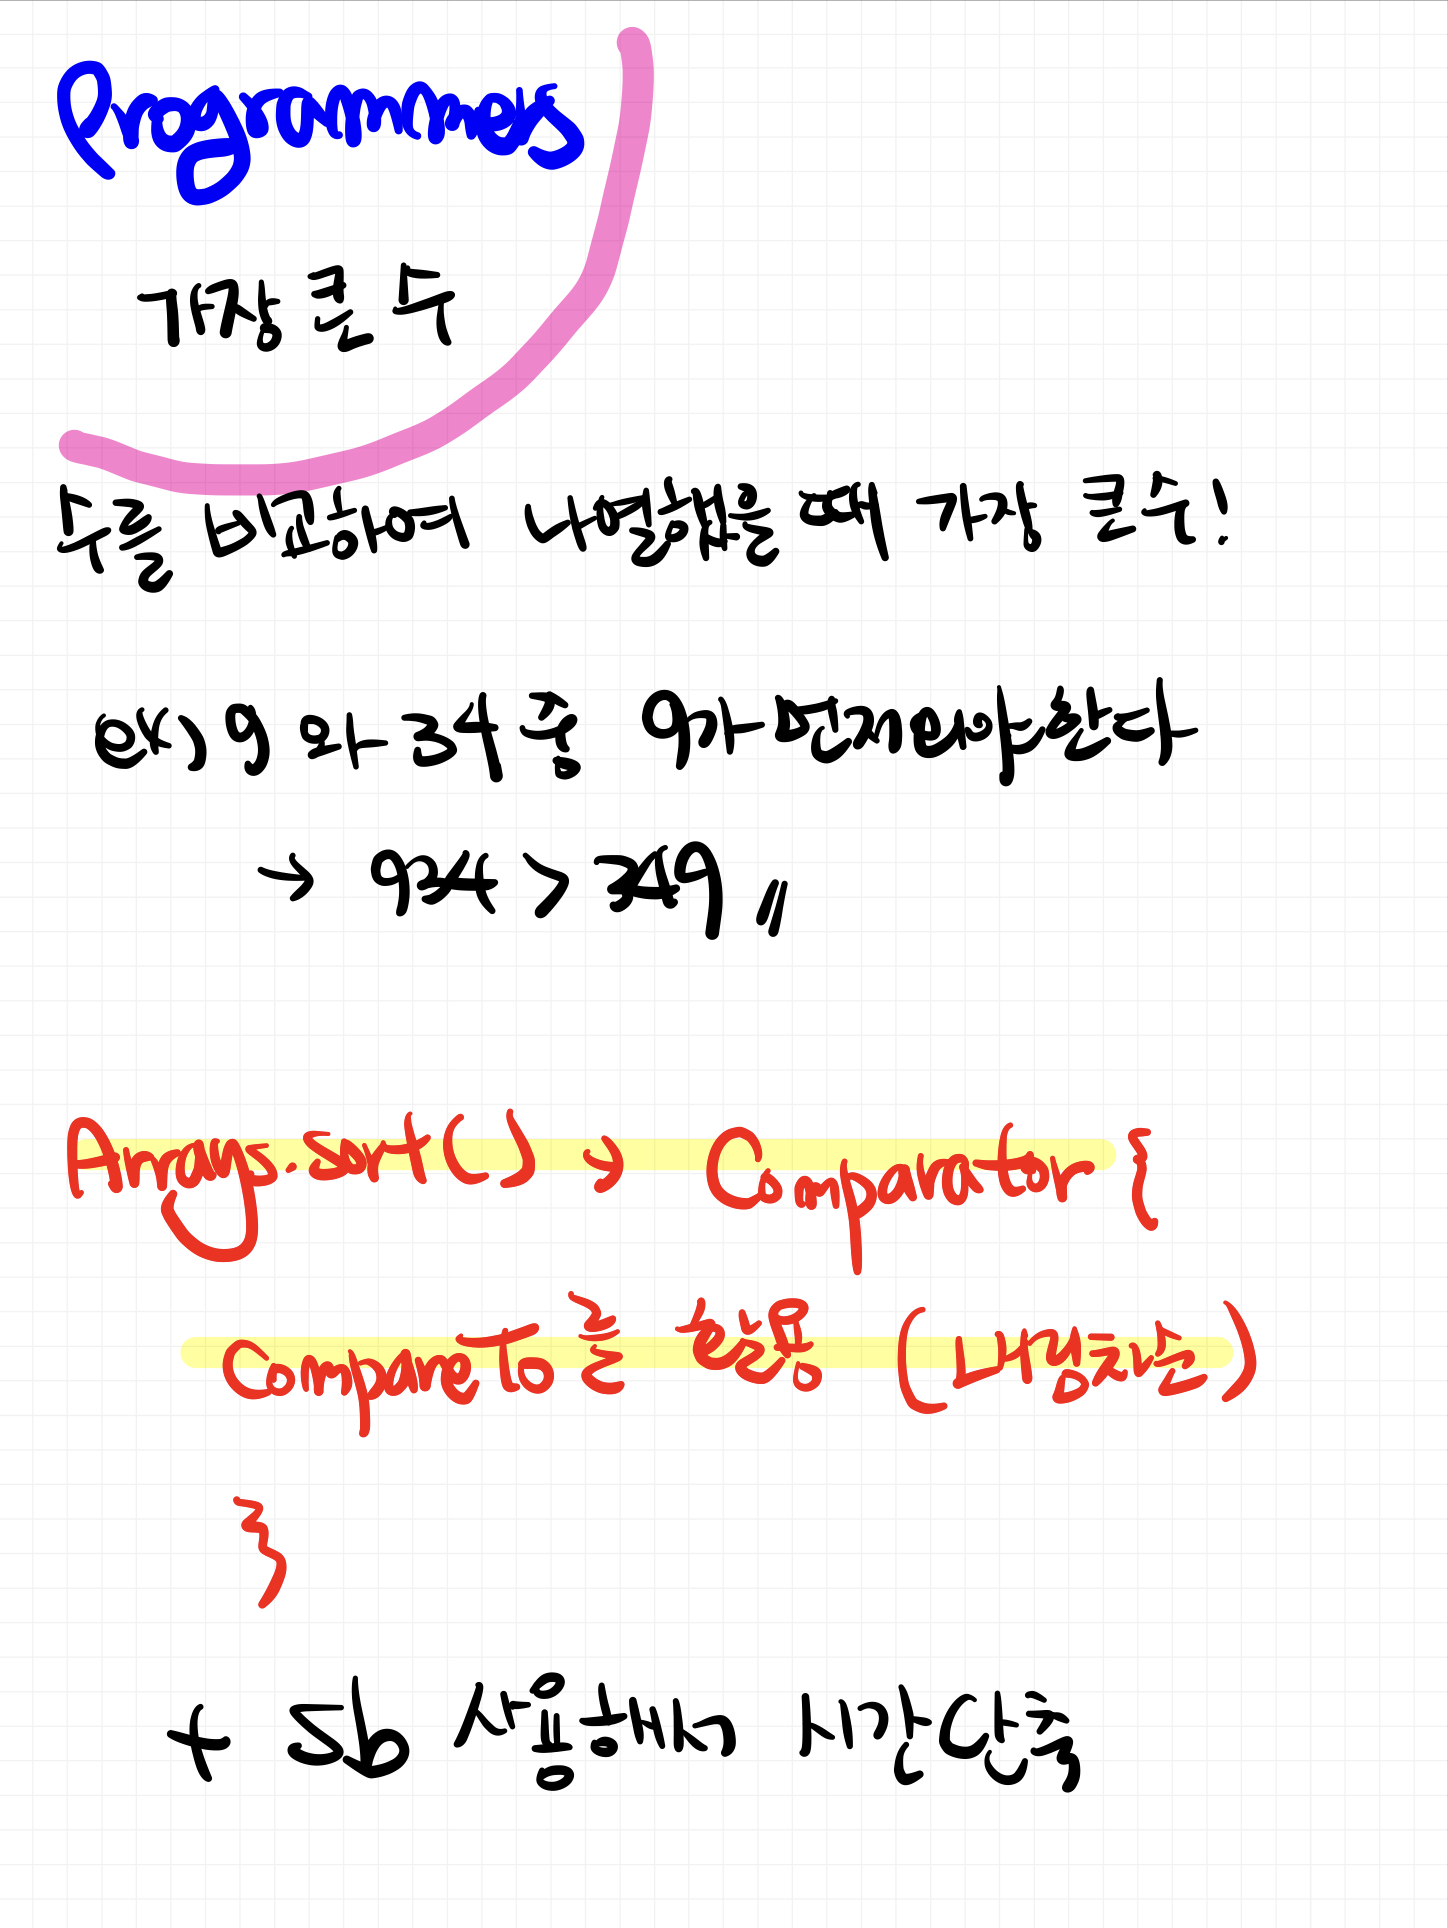 Programmers
가장 큰 수
수를 비교하여 나열했을 때 가장 큰 수!
ex) 9 와 34 중 9가 먼저와야한다
→ 934 > 349 〃
Arrays.sort() → Comparator {
CompareTo를 활용 (내림차순)
}
+ sb 사용해서 시간단축